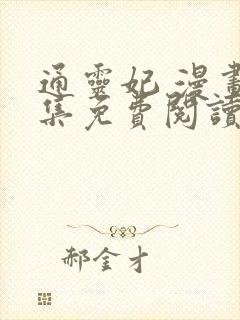 通靈妃 漫畫
集免費閱讀
郝金才